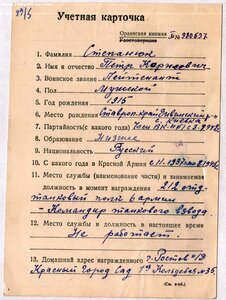 Учетная карточка
Орденская книжка
Удостоверение
№
1. Фамилия Степанюк
2. Имя и отчество Петр Корнеевич
3. Воинское звание Лейтенант
4. Пол Мужской
5. Год рождения 1915
6. Место рождения Ставроп. край
7. Партийность (с какого года) Член ВКП(б) с
8. Образование Низшее
9. Национальность Русский
10. С какого года в Красной Армии с
11. Место службы (наименование части) и занимаемая
должность в момент награждения 212 отд.
танковый полк 6 армии
- Командир танкового взвода
12. Место службы и должность в настоящее время
Не работает.
13. Домашний адрес награжденного г. Ростов н/Д
Красный Город Сад 1я № 36
(См. на об.)